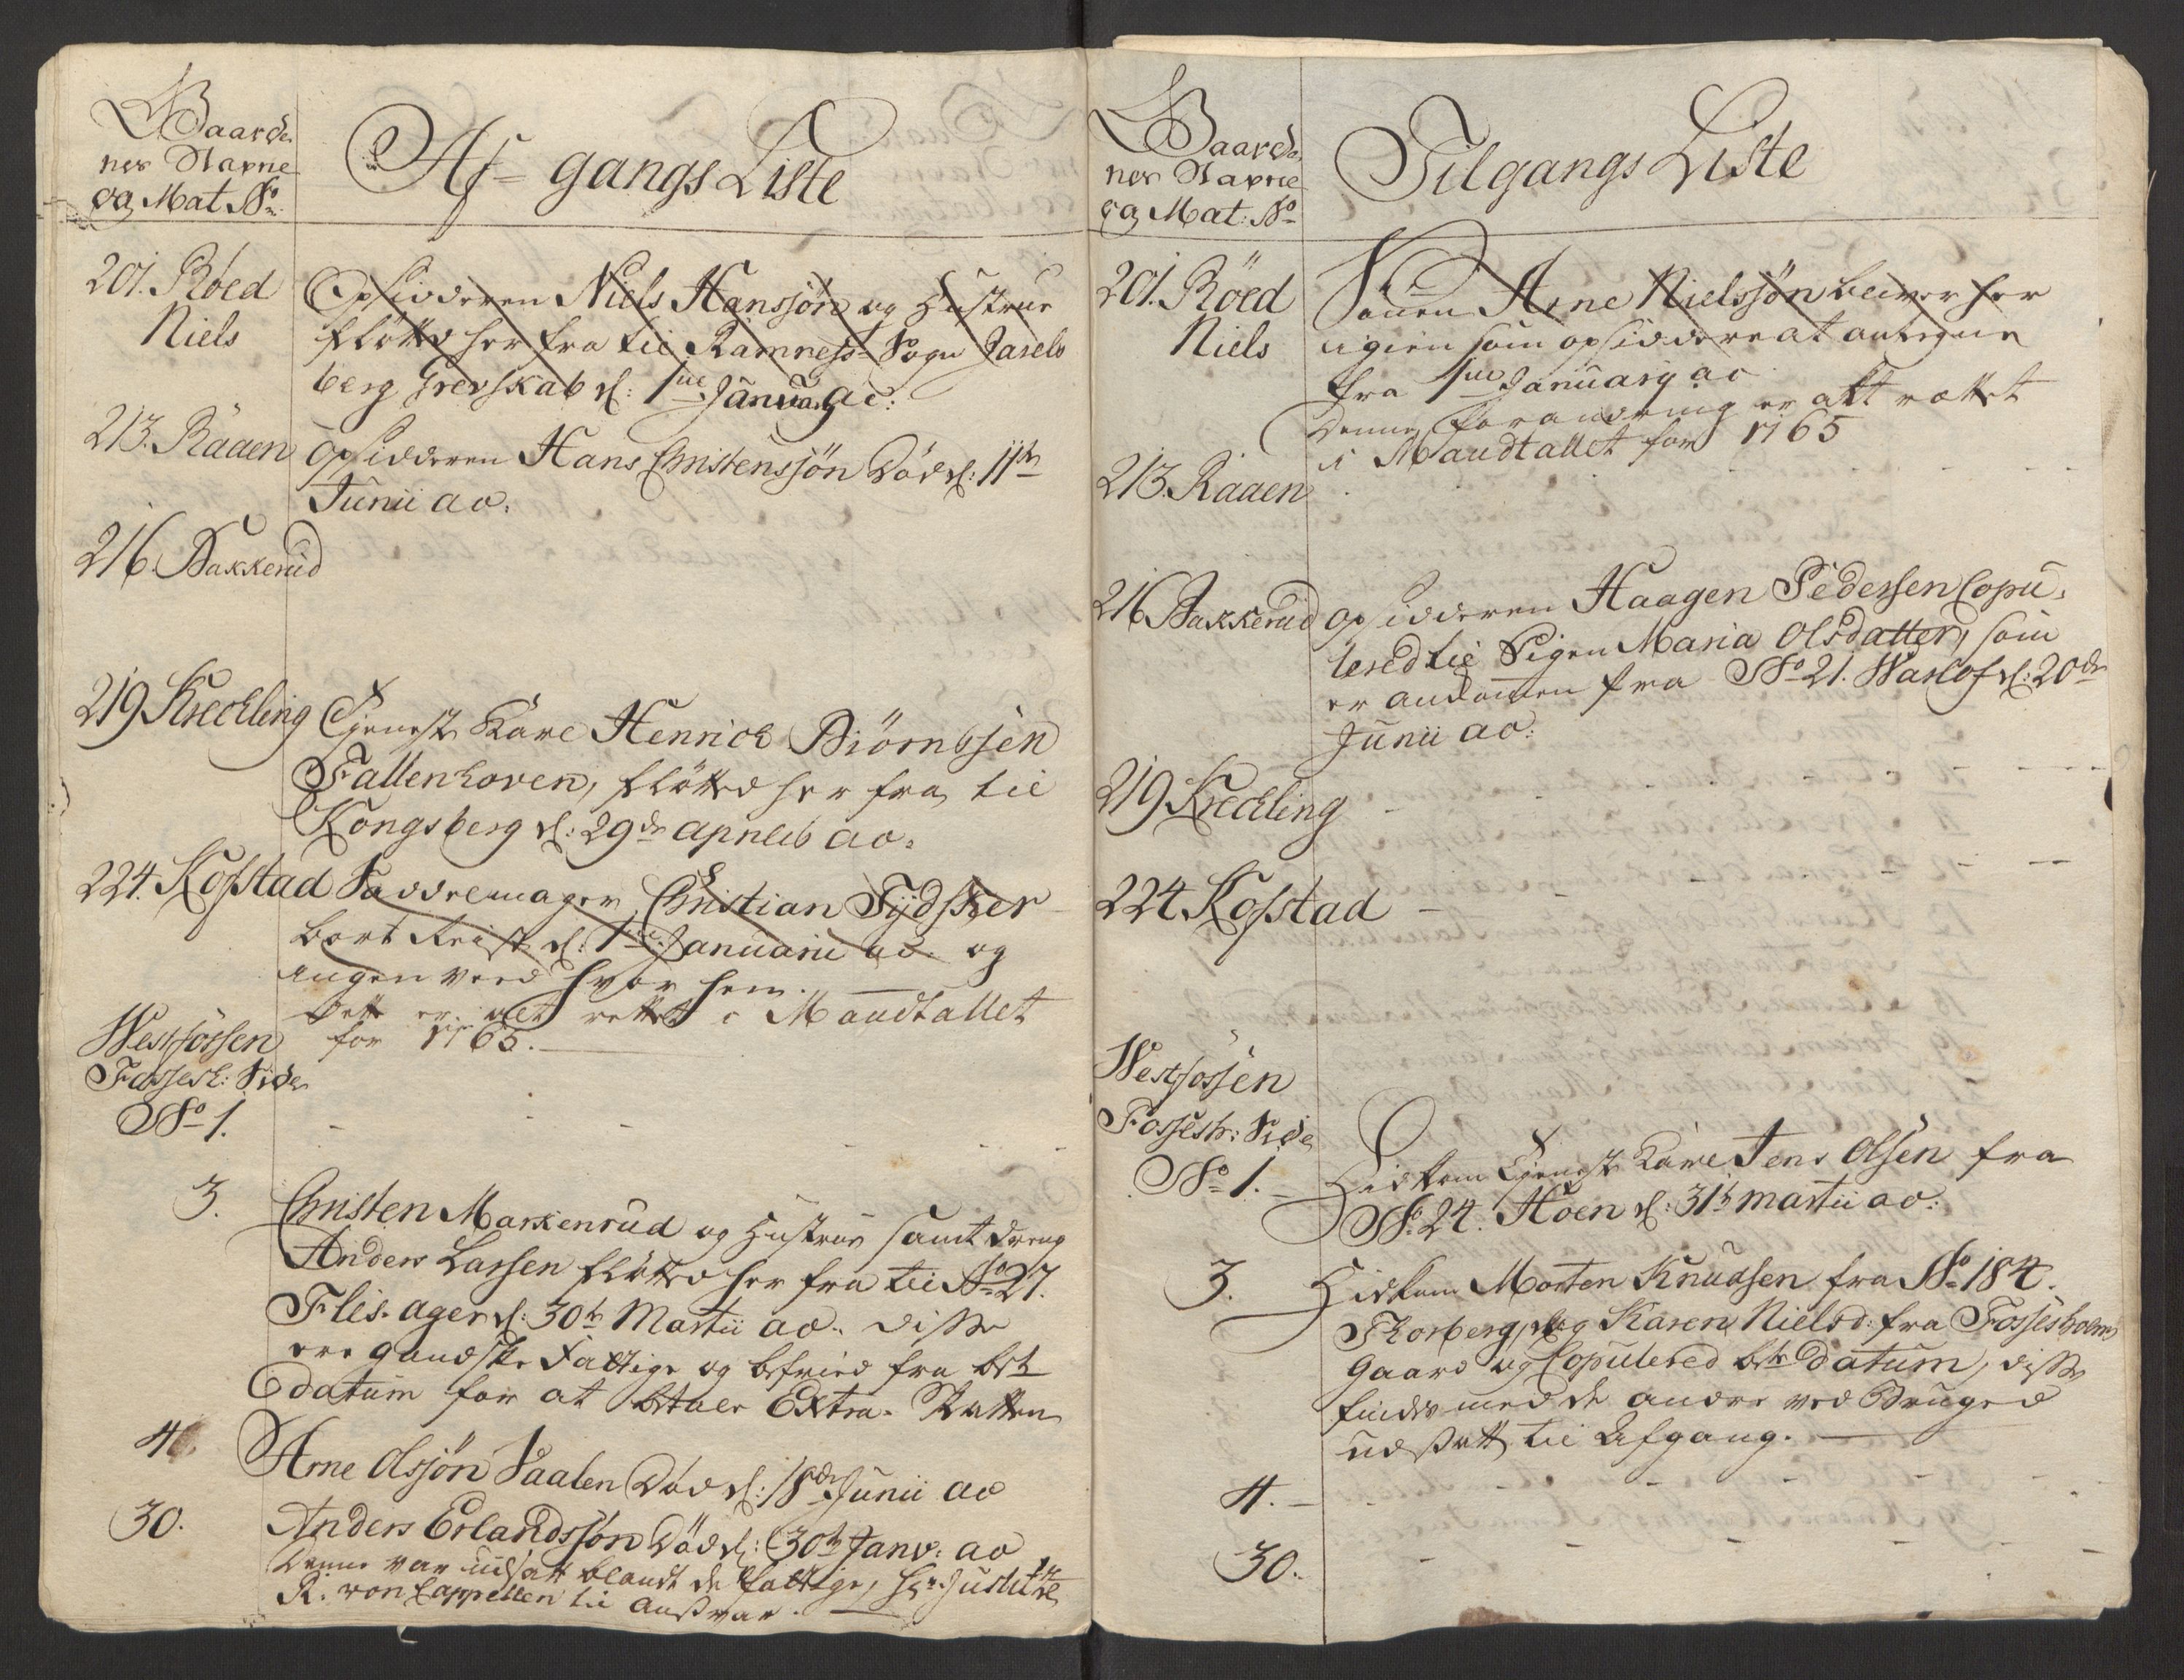 Gaarde
nes Navne
og Mat. No
Af-gangs Liste
201. Röed
Niels
Opsidderen Niels Hanssön og Hustrue
fløtted her fra til Ramness-Sogn Jarels
berg Grevskab d: 1ne Januarij ao:
213. Raaen
Opsidderen Hans Christenssön Död d: 11te
Junii ao.
216. Bakkerud
219 Krechling
Tjeneste Karl Henrich Biörnssen
Fallenhoven, fløtted her fra til
Kongsberg d: 29de aprilis ao.
224. Kofstad
Saddelmager Christian Tydsker
bort Reist d: 1ne Januarii ao. og
ingen veed hvor hen.
Dette er alt rettet i Mandtallet
for 1765.
Westfossen
Fossesh: Side
No 1.
3.
Christen Markenrud og Hustrue samt dreng
Anders Larsen fløtted her fra til No 27.
Flis-ager d: 30te Martii ao. disse
ere gandske Fattige og befried fra
datum for at betale Extra-Skatten
4.
Arne Olssön Saalen Död d: 18de Junii ao
30.
Anders Erlandssön Död d: 30te Janv: ao
Denne var udsatt blandt de fattige, Hr. Justitz
R. von Cappellen til ansvar.
Gaarde
nes Navne
og Mat: No
Tilgangs Liste
201. Röed
Niels
Sönnen Arne Nielssön bliver her
igien som opsiddere at antegne
fra 1ne Januarij ao
Denne forandring er alt rettet
i Mandtallet for 1765
213. Raaen
216 Bakkerud
Opsidderen Haagen Pedersen Copu-
lered til Pigen Maria Olsdatter, som
er ankommen fra No 21. Warlof d: 20de
Junii ao:
219 Krechling
224 Kofstad
Westfossen
Fossesh: Side
No 1.
Hidkom Tjeneste Karl Jens Olsen fra
No 24. Hoen d: 31te martii ao:
3.
Hidkom Morten Knudsen fra No 184.
Thorberg, og Karen Nielsd: fra Fossesholms
Gaard og Copulered datum, disse
findes med de andre ved Bruged
udsatt til Afgang.
4.
30.